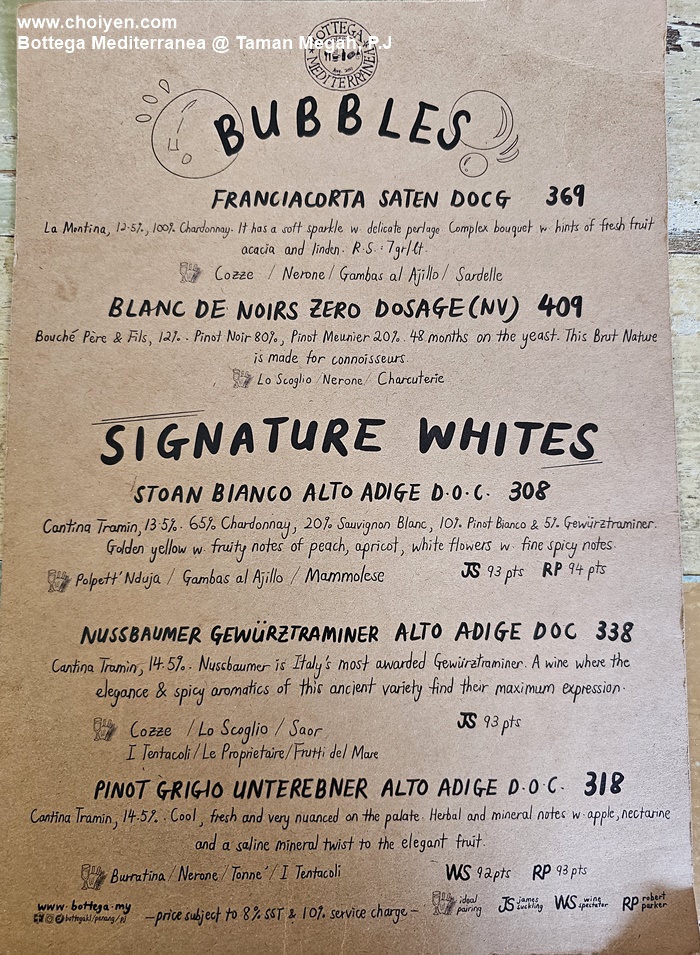 www.choiyen.com
Bottega Mediterranea @ Taman Megah, PJ
BOTTEGA
MEDITERRANEA
BUBBLES
FRANCIACORTA SATEN DOCG 369
La Montina, 12.5%, 100% Chardonnay. It has a soft sparkle w. delicate perlage Complex bouquet w. hints of fresh fruit
acacia and linden. R.S.: 7gr/Lt.
Cozze / Nerone / Gambas al Ajillo / Sardelle
BLANC DE NOIRS ZERO DOSAGE (NV) 409
Bouché Père & Fils, 12%. Pinot Noir 80%, Pinot Meunier 20%. 48 months on the yeast. This Brut Nature
is made for connoisseurs.
Lo Scoglio / Nerone / Charcuterie
SIGNATURE WHITES
STOAN BIANCO ALTO ADIGE D.O.C. 308
Cantina Tramin, 13.5%. 65% Chardonnay, 20% Sauvignon Blanc, 10% Pinot Bianco & 5% Gewürztraminer.
Golden yellow w. fruity notes of peach, apricot, white flowers w. fine spicy notes.
Polpett' Nduja / Gambas al Ajillo / Mammolese JS 93 pts RP 94 pts
NUSSBAUMER GEWÜRZTRAMINER ALTO ADIGE DOC 338
Cantina Tramin, 14.5%. Nussbaumer is Italy's most awarded Gewürztraminer. A wine where the
elegance & spicy aromatics of this ancient variety find their maximum expression.
Cozze / Lo Scoglio / Saor JS 93 pts
I Tentacoli / Le Proprietaire / Frutti del Mare
PINOT GRIGIO UNTEREBNER ALTO ADIGE D.O.C. 318
Cantina Tramin, 14.5%. Cool, fresh and very nuanced on the palate. Herbal and mineral notes w. apple, nectarine
and a saline mineral twist to the elegant fruit.
Burratina / Nerone / Tonne' / I Tentacoli WS 92 pts RP 93 pts
www.bottega.my
bottegakl/penang/pj
—price subject to 8% SST & 10% service charge—
ideal pairing JS james suckling WS wine spectator RP robert parker